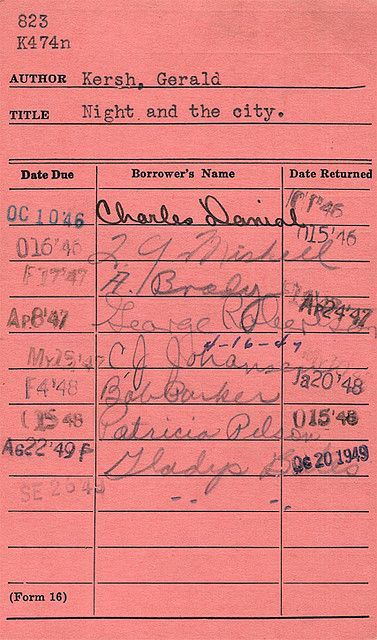 823
K474n
AUTHOR Kersh, Gerald
TITLE Night and the city.
Date Due Borrower's Name Date Returned
OC 10'46 Charles Danial
O16'46 O15'46
F17'47 A. Brady
Ap8'47 George Ap24'47
4-16-47
My15'47 C J
F4'48 Bob Parker Ja20'48
O15 48 Patricia O15'48
AG22'49 F Gladys OC 20 1949
SE 26 49 " "
(Form 16)